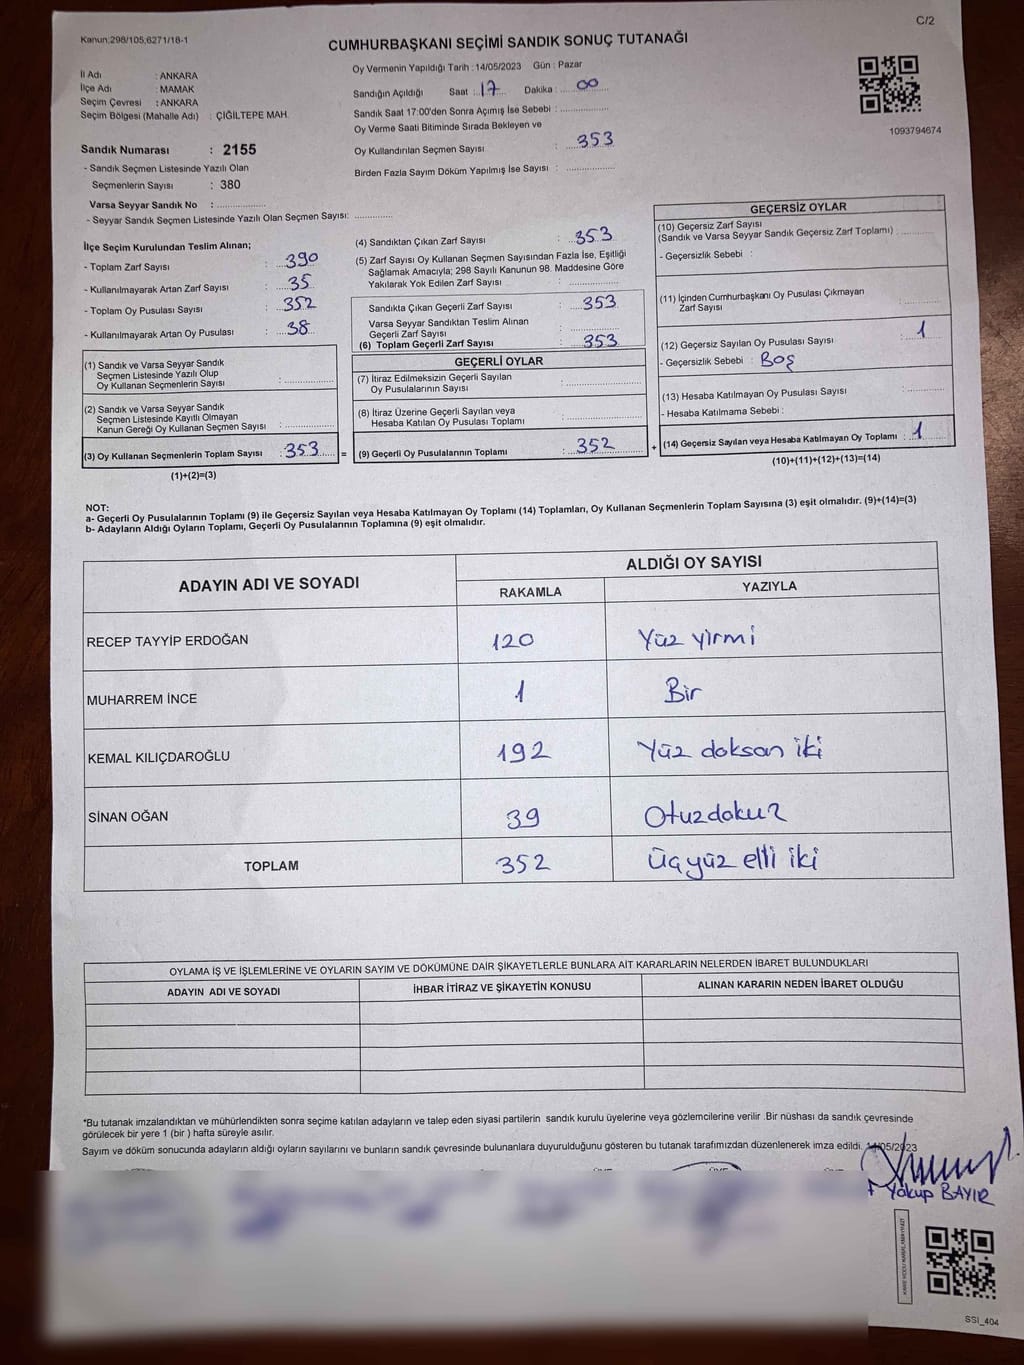 C/2
Kanun:298/105,6271/18-1
CUMHURBAŞKANI SEÇİMİ SANDIK SONUÇ TUTANAĞI
İl Adı : ANKARA
İlçe Adı : MAMAK
Seçim Çevresi : ANKARA
Seçim Bölgesi (Mahalle Adı) : ÇİĞİLTEPE MAH.
Sandık Numarası : 2155
- Sandık Seçmen Listesinde Yazılı Olan
Seçmenlerin Sayısı : 380
Varsa Seyyar Sandık No : ..................
- Seyyar Sandık Seçmen Listesinde Yazılı Olan Seçmen Sayısı: ..............
Oy Vermenin Yapıldığı Tarih : 14/05/2023 Gün : Pazar
Sandığın Açıldığı Saat : 17 Dakika : 00
Sandık Saat 17:00'den Sonra Açımış İse Sebebi : ..................
Oy Verme Saati Bitiminde Sırada Bekleyen ve
Oy Kullandırılan Seçmen Sayısı : 353
Birden Fazla Sayım Döküm Yapılmış İse Sayısı : ..................
1093794674
İlçe Seçim Kurulundan Teslim Alınan;
- Toplam Zarf Sayısı : 390
- Kullanılmayarak Artan Zarf Sayısı : 35
- Toplam Oy Pusulası Sayısı : 352
- Kullanılmayarak Artan Oy Pusulası : 38
(1) Sandık ve Varsa Seyyar Sandık
Seçmen Listesinde Yazılı Olup
Oy Kullanan Seçmenlerin Sayısı : ..................
(2) Sandık ve Varsa Seyyar Sandık
Seçmen Listesinde Kayıtlı Olmayan
Kanun Gereği Oy Kullanan Seçmen Sayısı : ..................
(3) Oy Kullanan Seçmenlerin Toplam Sayısı : 353 =
(1)+(2)=(3)
(4) Sandıktan Çıkan Zarf Sayısı : 353
(5) Zarf Sayısı Oy Kullanan Seçmen Sayısından Fazla İse, Eşitliği
Sağlamak Amacıyla; 298 Sayılı Kanunun 98. Maddesine Göre
Yakılarak Yok Edilen Zarf Sayısı : ..................
Sandıkta Çıkan Geçerli Zarf Sayısı : 353
Varsa Seyyar Sandıktan Teslim Alınan
Geçerli Zarf Sayısı : ..................
(6) Toplam Geçerli Zarf Sayısı : 353
GEÇERLİ OYLAR
(7) İtiraz Edilmeksizin Geçerli Sayılan
Oy Pusulalarının Sayısı : ..................
(8) İtiraz Üzerine Geçerli Sayılan veya
Hesaba Katılan Oy Pusulası Toplamı : ..................
(9) Geçerli Oy Pusulalarının Toplamı : 352 +
GEÇERSİZ OYLAR
(10) Geçersiz Zarf Sayısı
(Sandık ve Varsa Seyyar Sandık Geçersiz Zarf Toplamı) : ............
- Geçersizlik Sebebi :
(11) İçinden Cumhurbaşkanı Oy Pusulası Çıkmayan
Zarf Sayısı : ............
(12) Geçersiz Sayılan Oy Pusulası Sayısı : 1
- Geçersizlik Sebebi : Boş
(13) Hesaba Katılmayan Oy Pusulası Sayısı : ............
- Hesaba Katılmama Sebebi :
(14) Geçersiz Sayılan veya Hesaba Katılmayan Oy Toplamı : 1
(10)+(11)+(12)+(13)=(14)
NOT:
a- Geçerli Oy Pusulalarının Toplamı (9) ile Geçersiz Sayılan veya Hesaba Katılmayan Oy Toplamı (14) Toplamları, Oy Kullanan Seçmenlerin Toplam Sayısına (3) eşit olmalıdır. (9)+(14)=(3)
b- Adayların Aldığı Oyların Toplamı, Geçerli Oy Pusulalarının Toplamına (9) eşit olmalıdır.
ADAYIN ADI VE SOYADI ALDIĞI OY SAYISI
RAKAMLA YAZIYLA
RECEP TAYYİP ERDOĞAN 120 Yüz yirmi
MUHARREM İNCE 1 Bir
KEMAL KILIÇDAROĞLU 192 Yüz doksan iki
SİNAN OĞAN 39 Otuzdokuz
TOPLAM 352 Üçyüz elli iki
OYLAMA İŞ VE İŞLEMLERİNE VE OYLARIN SAYIM VE DÖKÜMÜNE DAİR ŞİKAYETLERLE BUNLARA AİT KARARLARIN NELERDEN İBARET BULUNDUKLARI
ADAYIN ADI VE SOYADI İHBAR İTİRAZ VE ŞİKAYETİN KONUSU ALINAN KARARIN NEDEN İBARET OLDUĞU
*Bu tutanak imzalandıktan ve mühürlendikten sonra seçime katılan adayların ve talep eden siyasi partilerin sandık kurulu üyelerine veya gözlemcilerine verilir .Bir nüshası da sandık çevresinde
görülecek bir yere 1 (bir ) hafta süreyle asılır.
Sayım ve döküm sonucunda adayların aldığı oyların sayılarını ve bunların sandık çevresinde bulunanlara duyurulduğunu gösteren bu tutanak tarafımızdan düzenlenerek imza edildi. 14/05/2023
Yakup BAYIR
SSI_404